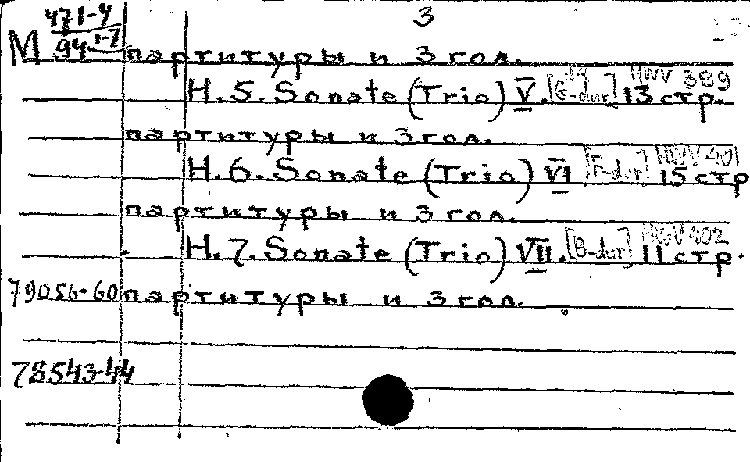 3
М 471-4
94 1-7 партитуры и 3 гол.
H. 5. Sonate (Trio) V. [G-dur] HWV 399 13 стр.
партитуры и 3 гол.
H. 6. Sonate (Trio) VI [F-dur] HWV 401 15 стр
партитуры и 3 гол.
H. 7. Sonate (Trio) VII. [B-dur] HWV 402 11 стр.
79056-60 партитуры и 3 гол.
78543-44